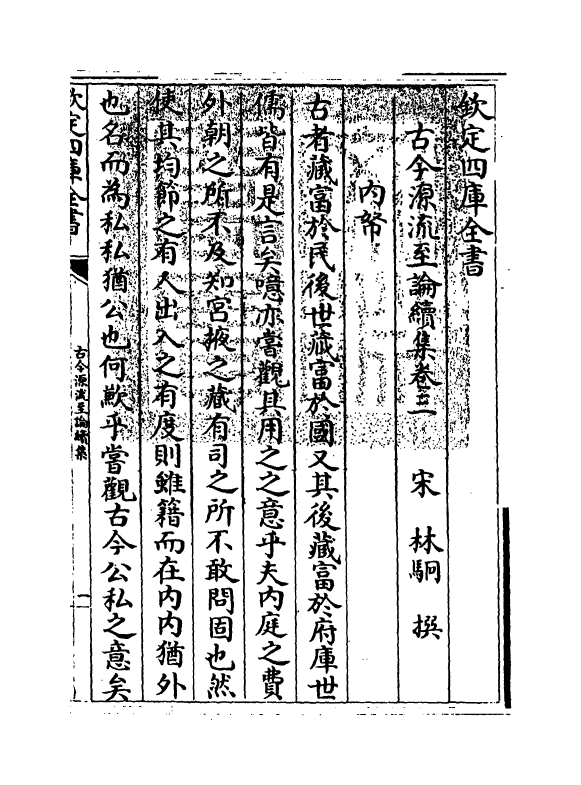 欽定四庫全書
古今源流至論續集卷三
宋 林駉 撰
内帑
古者藏富於民後世藏富於國又其後藏富於府庫世
儒皆有是言矣噫亦嘗觀其用之之意乎夫内庭之費
外朝之所不及知宮掖之藏有司之所不敢問固也然
使其均節之有人出入之有度則雖籍而在内内猶外
也名而為私私猶公也何歉乎嘗觀古今公私之意矣
欽定四庫全書
古今源流至論續集
一